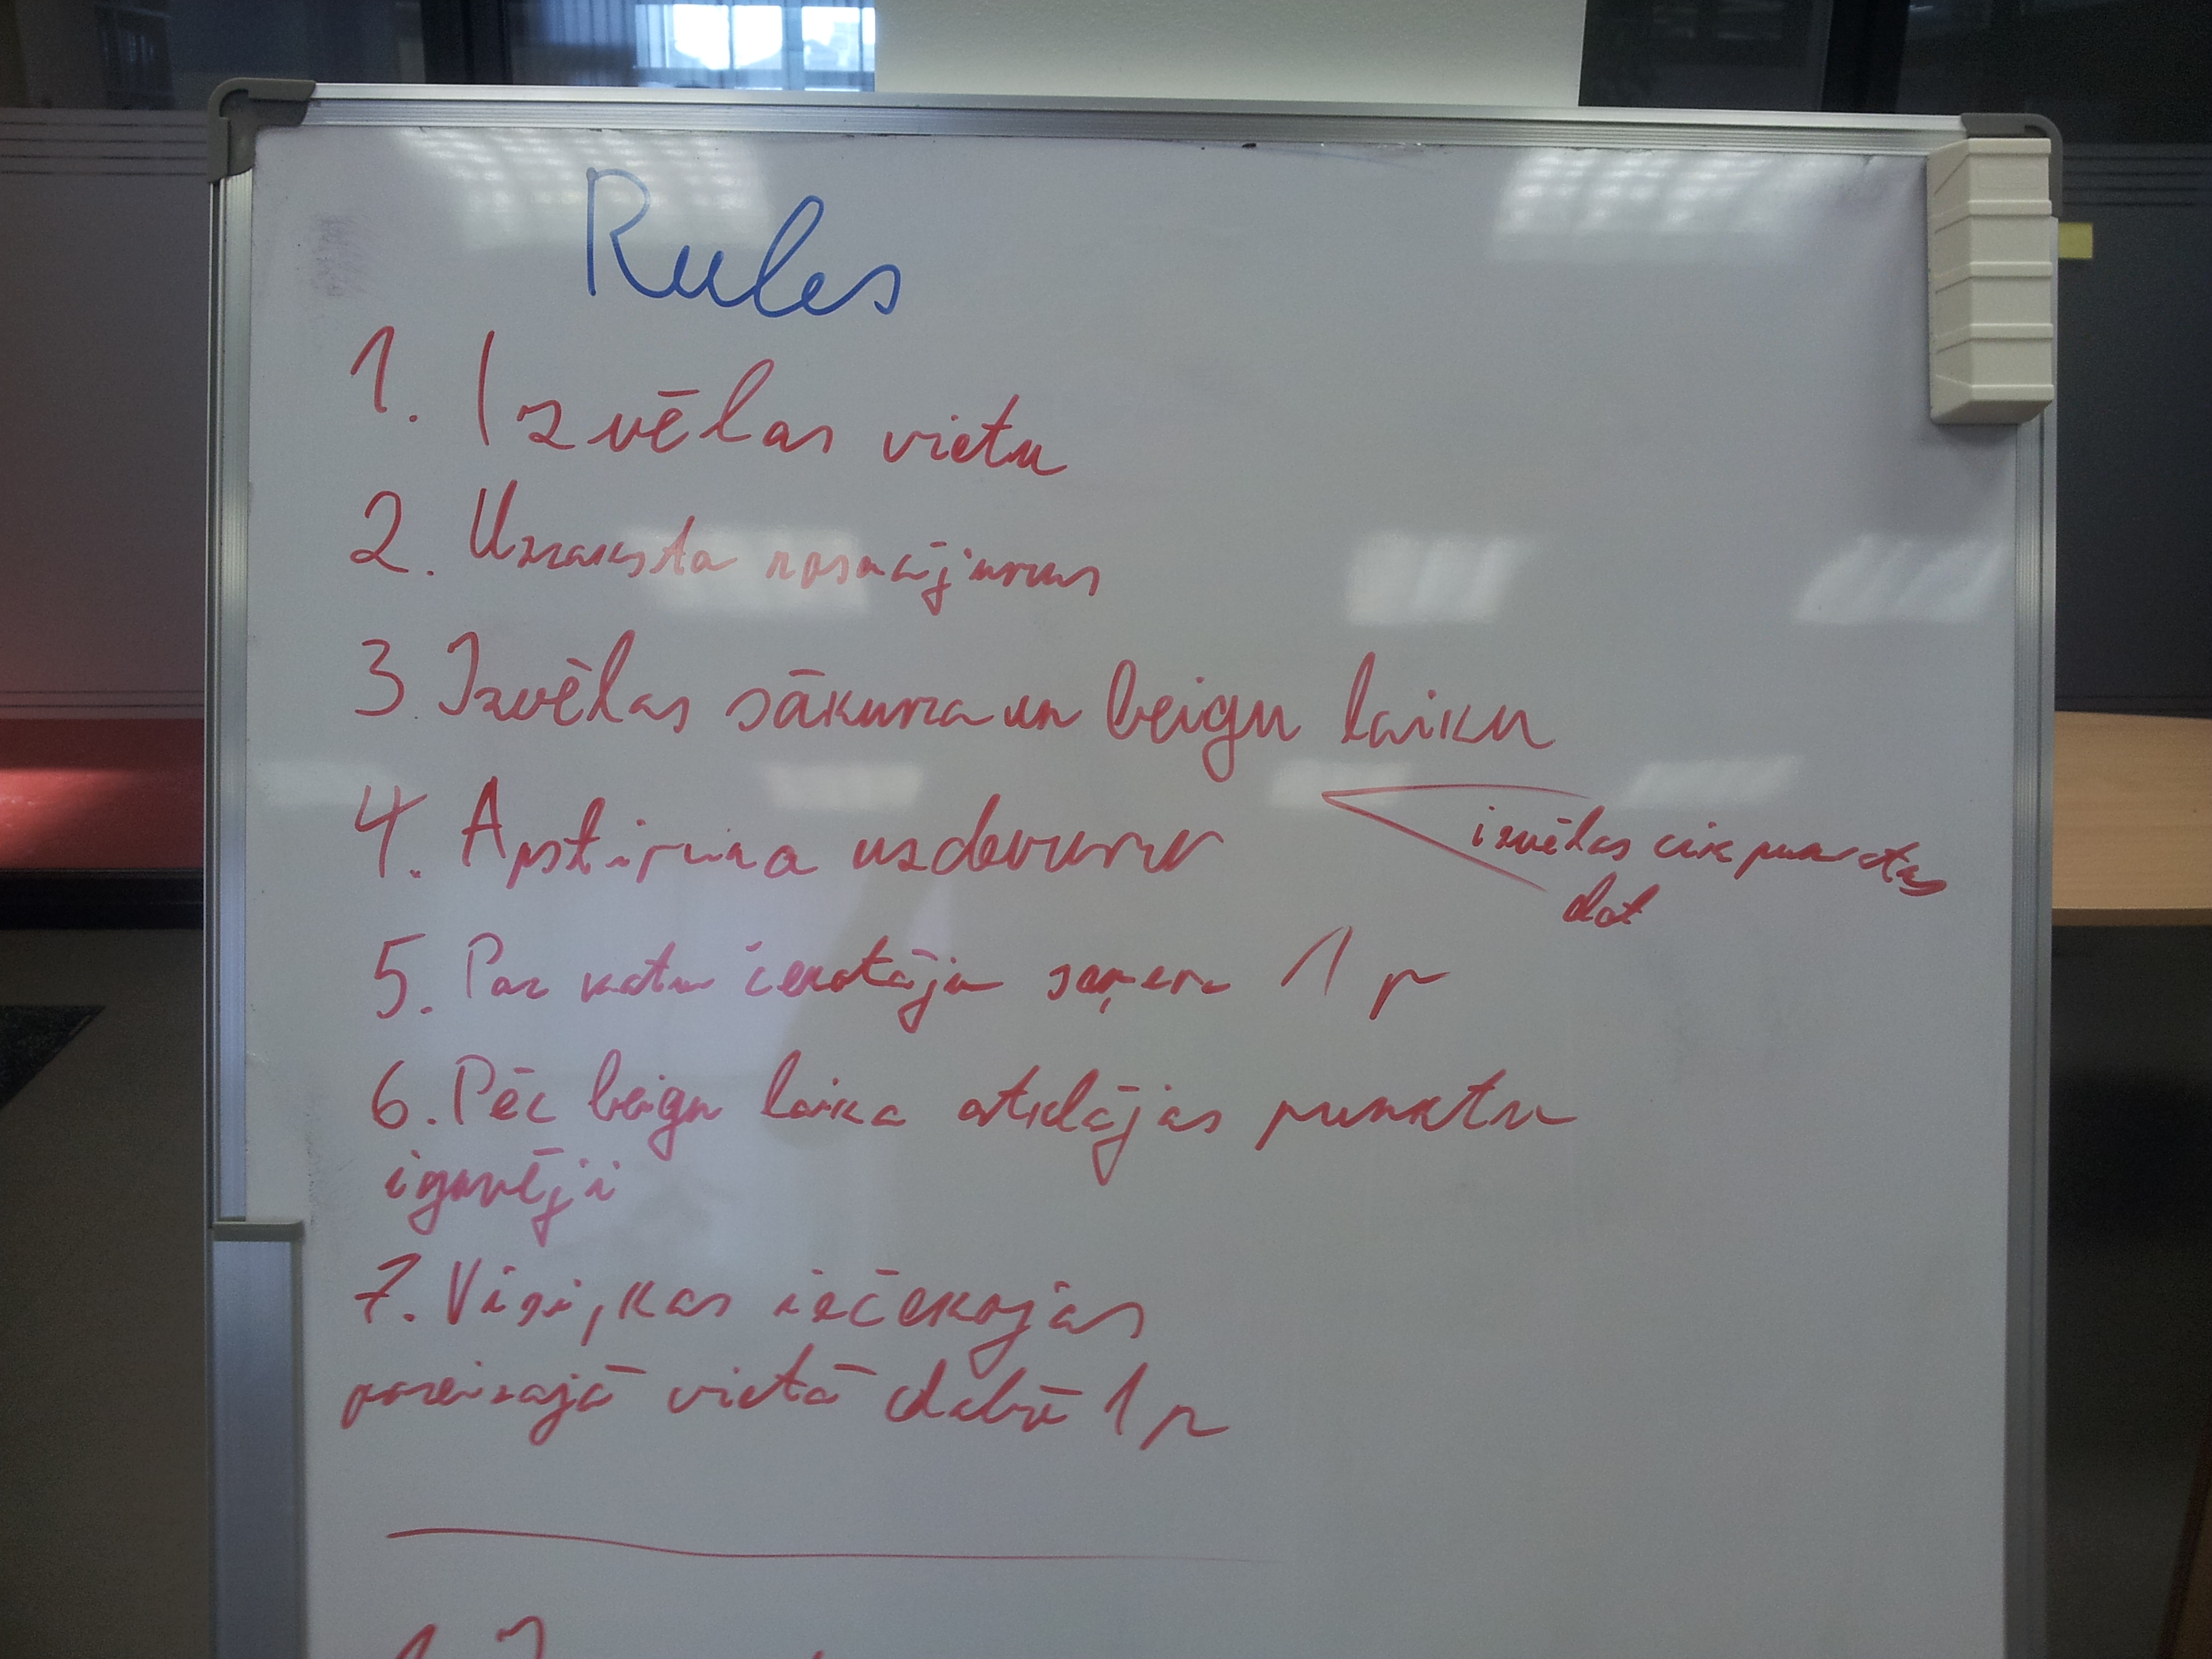 Rules
1. Izvēlas vietu
2. Uzraksta nosacījumus
3. Izvēlas sākuma un beigu laiku
4. Apstiprina uzdevumu
izvēlas cik punktus
dot
5. Par katru čekotāju saņem 1 p
6. Pēc beigu laika atklājas punktu
ieguvēji
7. Visi, kas iečekojas
pareizajā vietā dabū 1 p